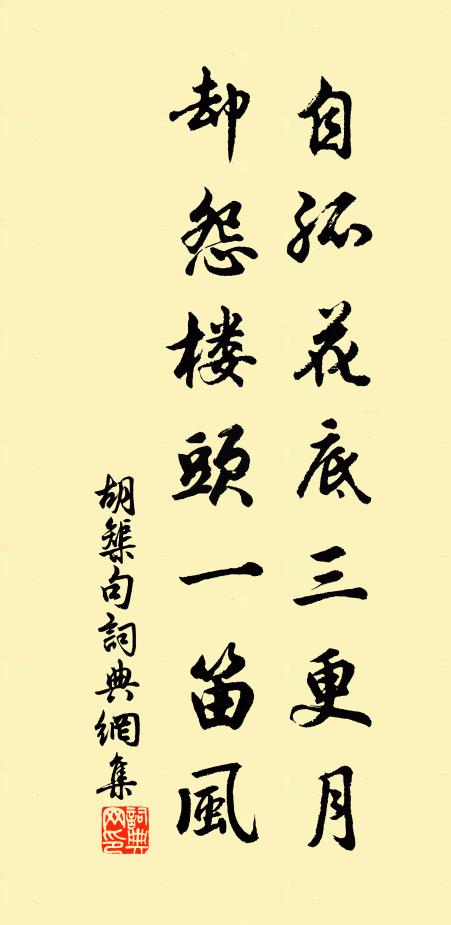 自孤花底三更月
却怨楼頭一笛風
胡榘句詞典網集
詞典网印